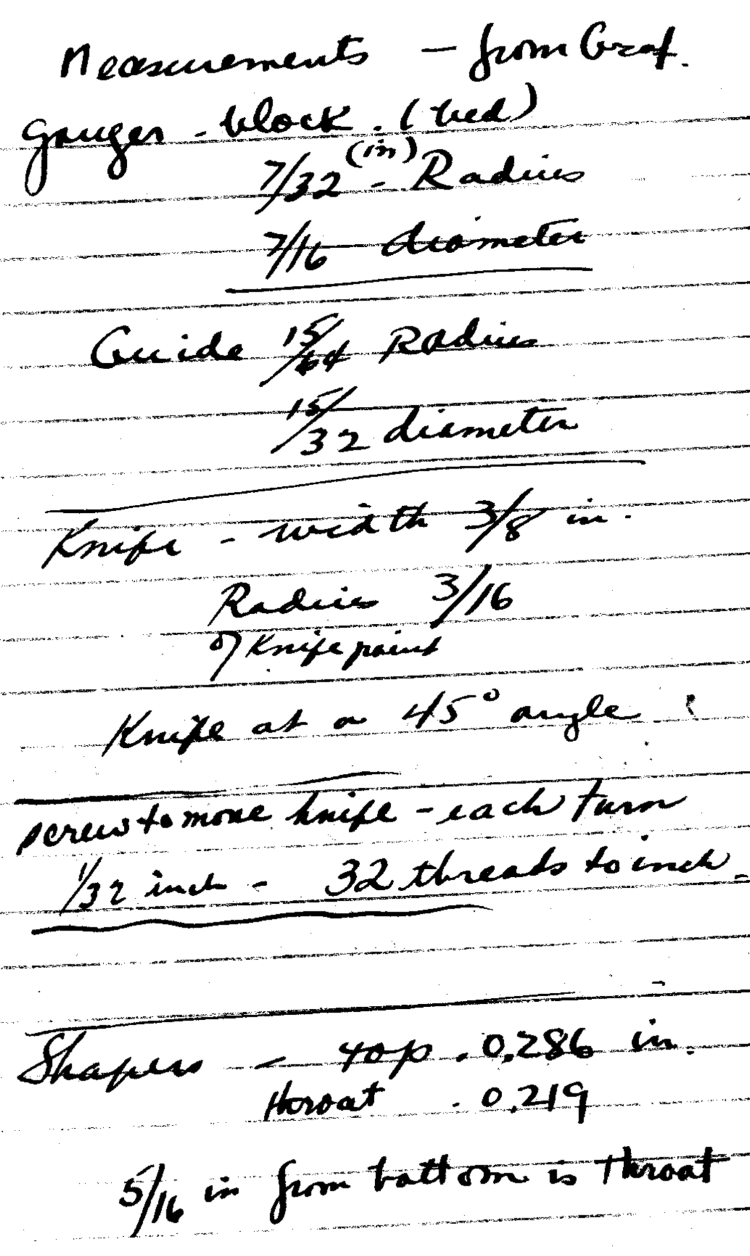 Measurements - from Graf.
gouger - block. (bed)
7/32 (in) - Radius
7/16 diameter
Guide 15/64 Radius
15/32 diameter
Knife - width 3/8 in.
Radius 3/16
of Knife point
Knife at a 45° angle
screw to move knife - each turn
1/32 inch - 32 threads to inch
Shapers - top . 0.286 in.
throat . 0.219
5/16 in from bottom is throat